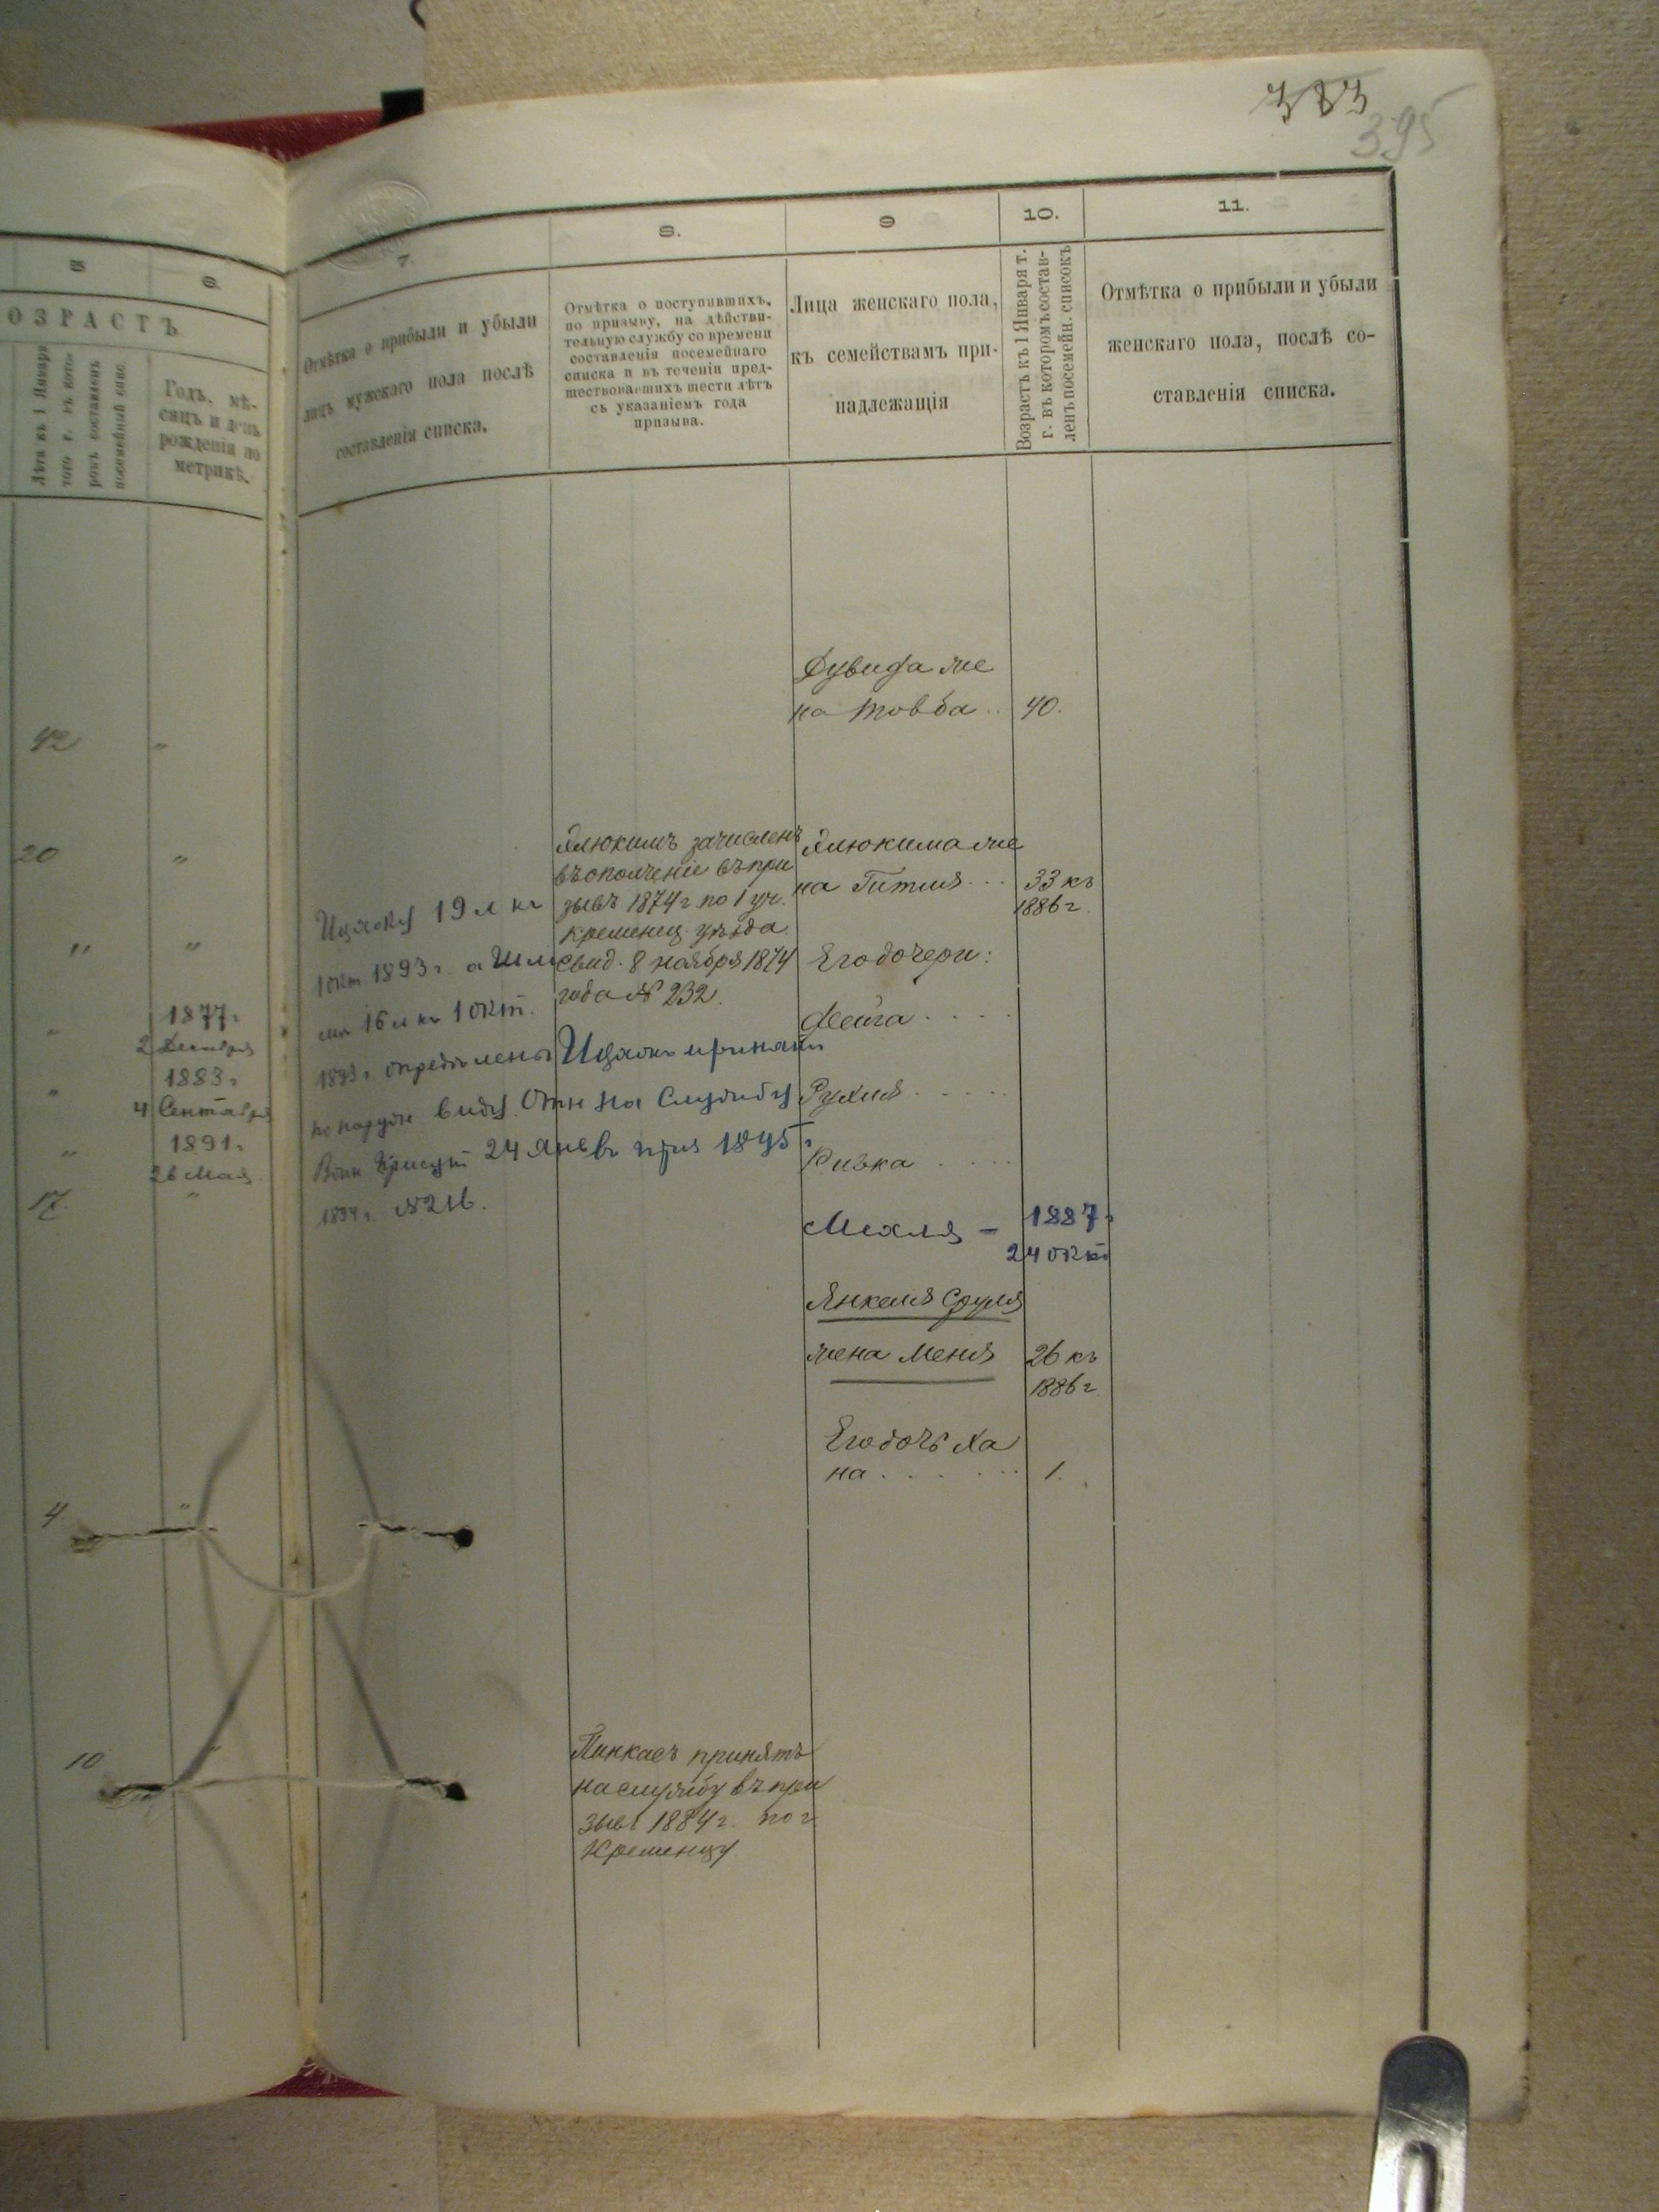 383
395
5
6
ОЗРАСТЪ
Лѣта къ 1 Января
того г. въ кото-
ромъ составленъ
посемейный спис.
Годъ, мѣ-
сяцъ и день
рожденія по
метрикѣ.
42 "
20 "
" "
" 1877 г.
2 Декабря
" 1883 г.
4 Сентября
" 1891 г.
26 Мая
17. "
4 "
10
7.
Отмѣтка о прибыли и убыли
лицъ мужскаго пола послѣ
составленія списка.
Ицоку 19 л къ
1 окт 1893 г. а Шлё
мѣ 16 л къ 1 окт.
1893 г. опредѣлены
по наружн виду.
Воин Присут
1894 г. №216.
8.
Отмѣтка о поступившихъ,
по призыву, на дѣйстви-
тельную службу со времени
составленія посемейнаго
списка и въ теченіи пред-
шествовавшихъ шести лѣтъ
съ указаніемъ года
призыва.
Элюкимъ зачисленъ
въ ополченіе въ при
зывъ 1874 г. по 1 уч.
кременец. уѣзда
свид. 8 ноября 1874
года № 232.
Ицокъ принятъ
на Службу
24 Янв 1895 г
Пинкасъ принятъ
на службу въ при
зывъ 1884 г. по г
Кременцу
9
Лица женскаго пола,
къ семействамъ при-
надлежащія
Дувида же
на Товба ..
Элюкима же
на Гитля ...
Его дочери:
Фейга ....
Рухля .....
Ривка ....
Мехля –
Янкеля Сруля
жена Меня
Его дочь Ха
на ......
10.
Возрастъ къ 1 Января т.
г. въ которомъ состав-
ленъ посемейн. списокъ
40.
33 къ
1886 г.
1887 г
24 окт
26 къ
1886 г.
1.
11.
Отмѣтка о прибыли и убыли
женскаго пола, послѣ со-
ставленія списка.